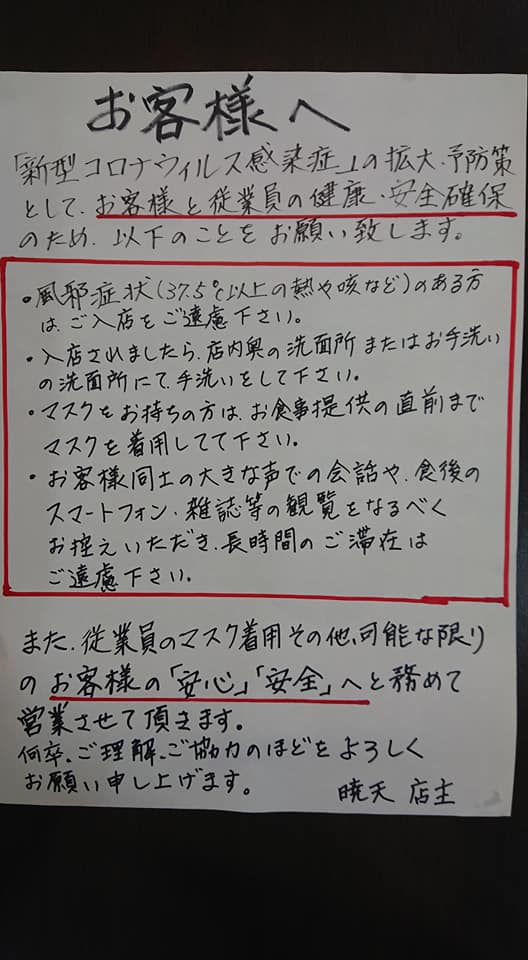 お客様へ
「新型コロナウィルス感染症」の拡大、予防策
として、お客様と従業員の健康、安全確保
のため、以下のことをお願い致します。
・風邪症状(37.5℃以上の熱や咳など)のある方
は、ご入店をご遠慮下さい。
・入店されましたら、店内奥の洗面所またはお手洗い
の洗面所にて、手洗いをして下さい。
・マスクをお持ちの方は、お食事提供の直前まで
マスクを着用してて下さい。
・お客様同士の大きな声での会話や、食後の
スマートフォン、雑誌等の観覧をなるべく
お控えいただき、長時間のご滞在は
ご遠慮下さい。
また、従業員のマスク着用その他、可能な限り
のお客様の「安心」「安全」へと務めて
営業させて頂きます。
何卒、ご理解、ご協力のほどをよろしく
お願い申し上げます。 暁天 店主